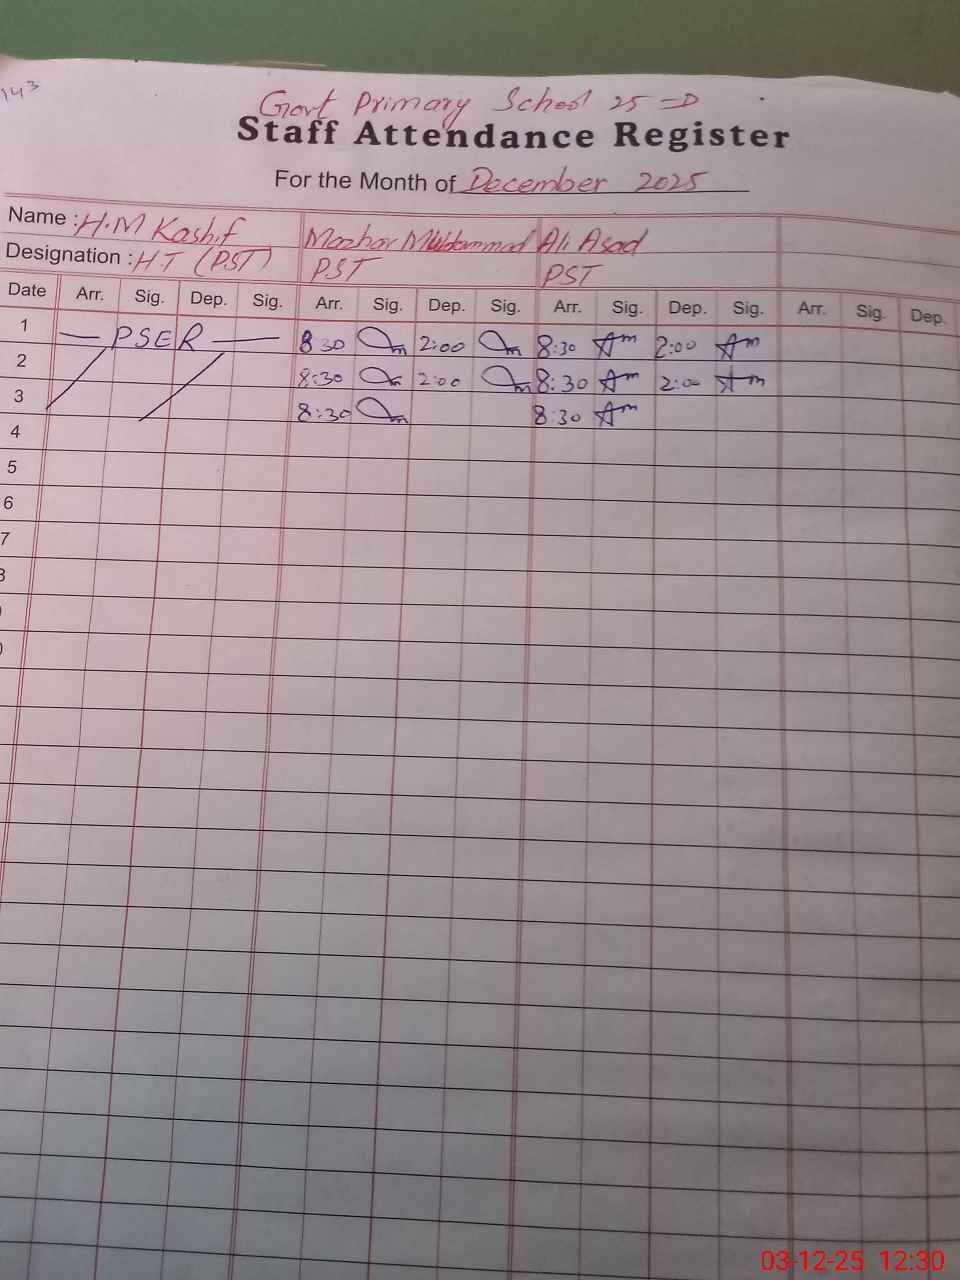 143
Govt Primary School 25=D
Staff Attendance Register
For the Month of December 2025
Name : H.M Kashif Mazhar Muhammad Ali Asad
Designation : HT (PST) PST PST
Date Arr. Sig. Dep. Sig. Arr. Sig. Dep. Sig. Arr. Sig. Dep. Sig. Arr. Sig. Dep.
1 — PSER — 8 30 2:00 8:30 Am 2:00 Am
2 8:30 2:00 8:30 Am 2:00 Am
3 8:30 8:30 Am
4
5
6
7
03-12-25 12:30